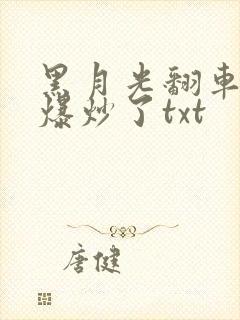 黑月光翻車
爆炒了txt
唐健